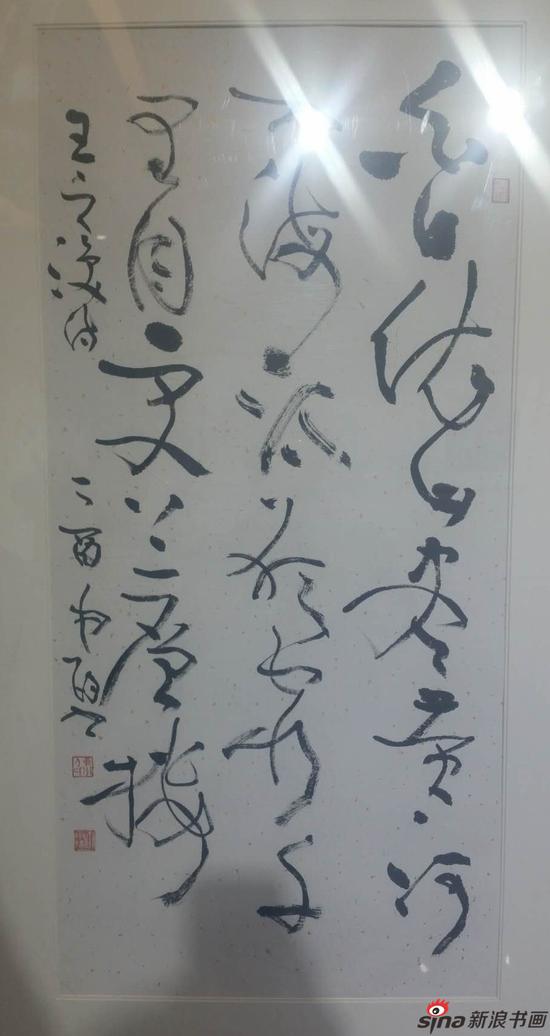 白日依山盡黄河
入海流欲窮千
里目更上一層樓
王之涣詩 丁酉
sina 新浪书画